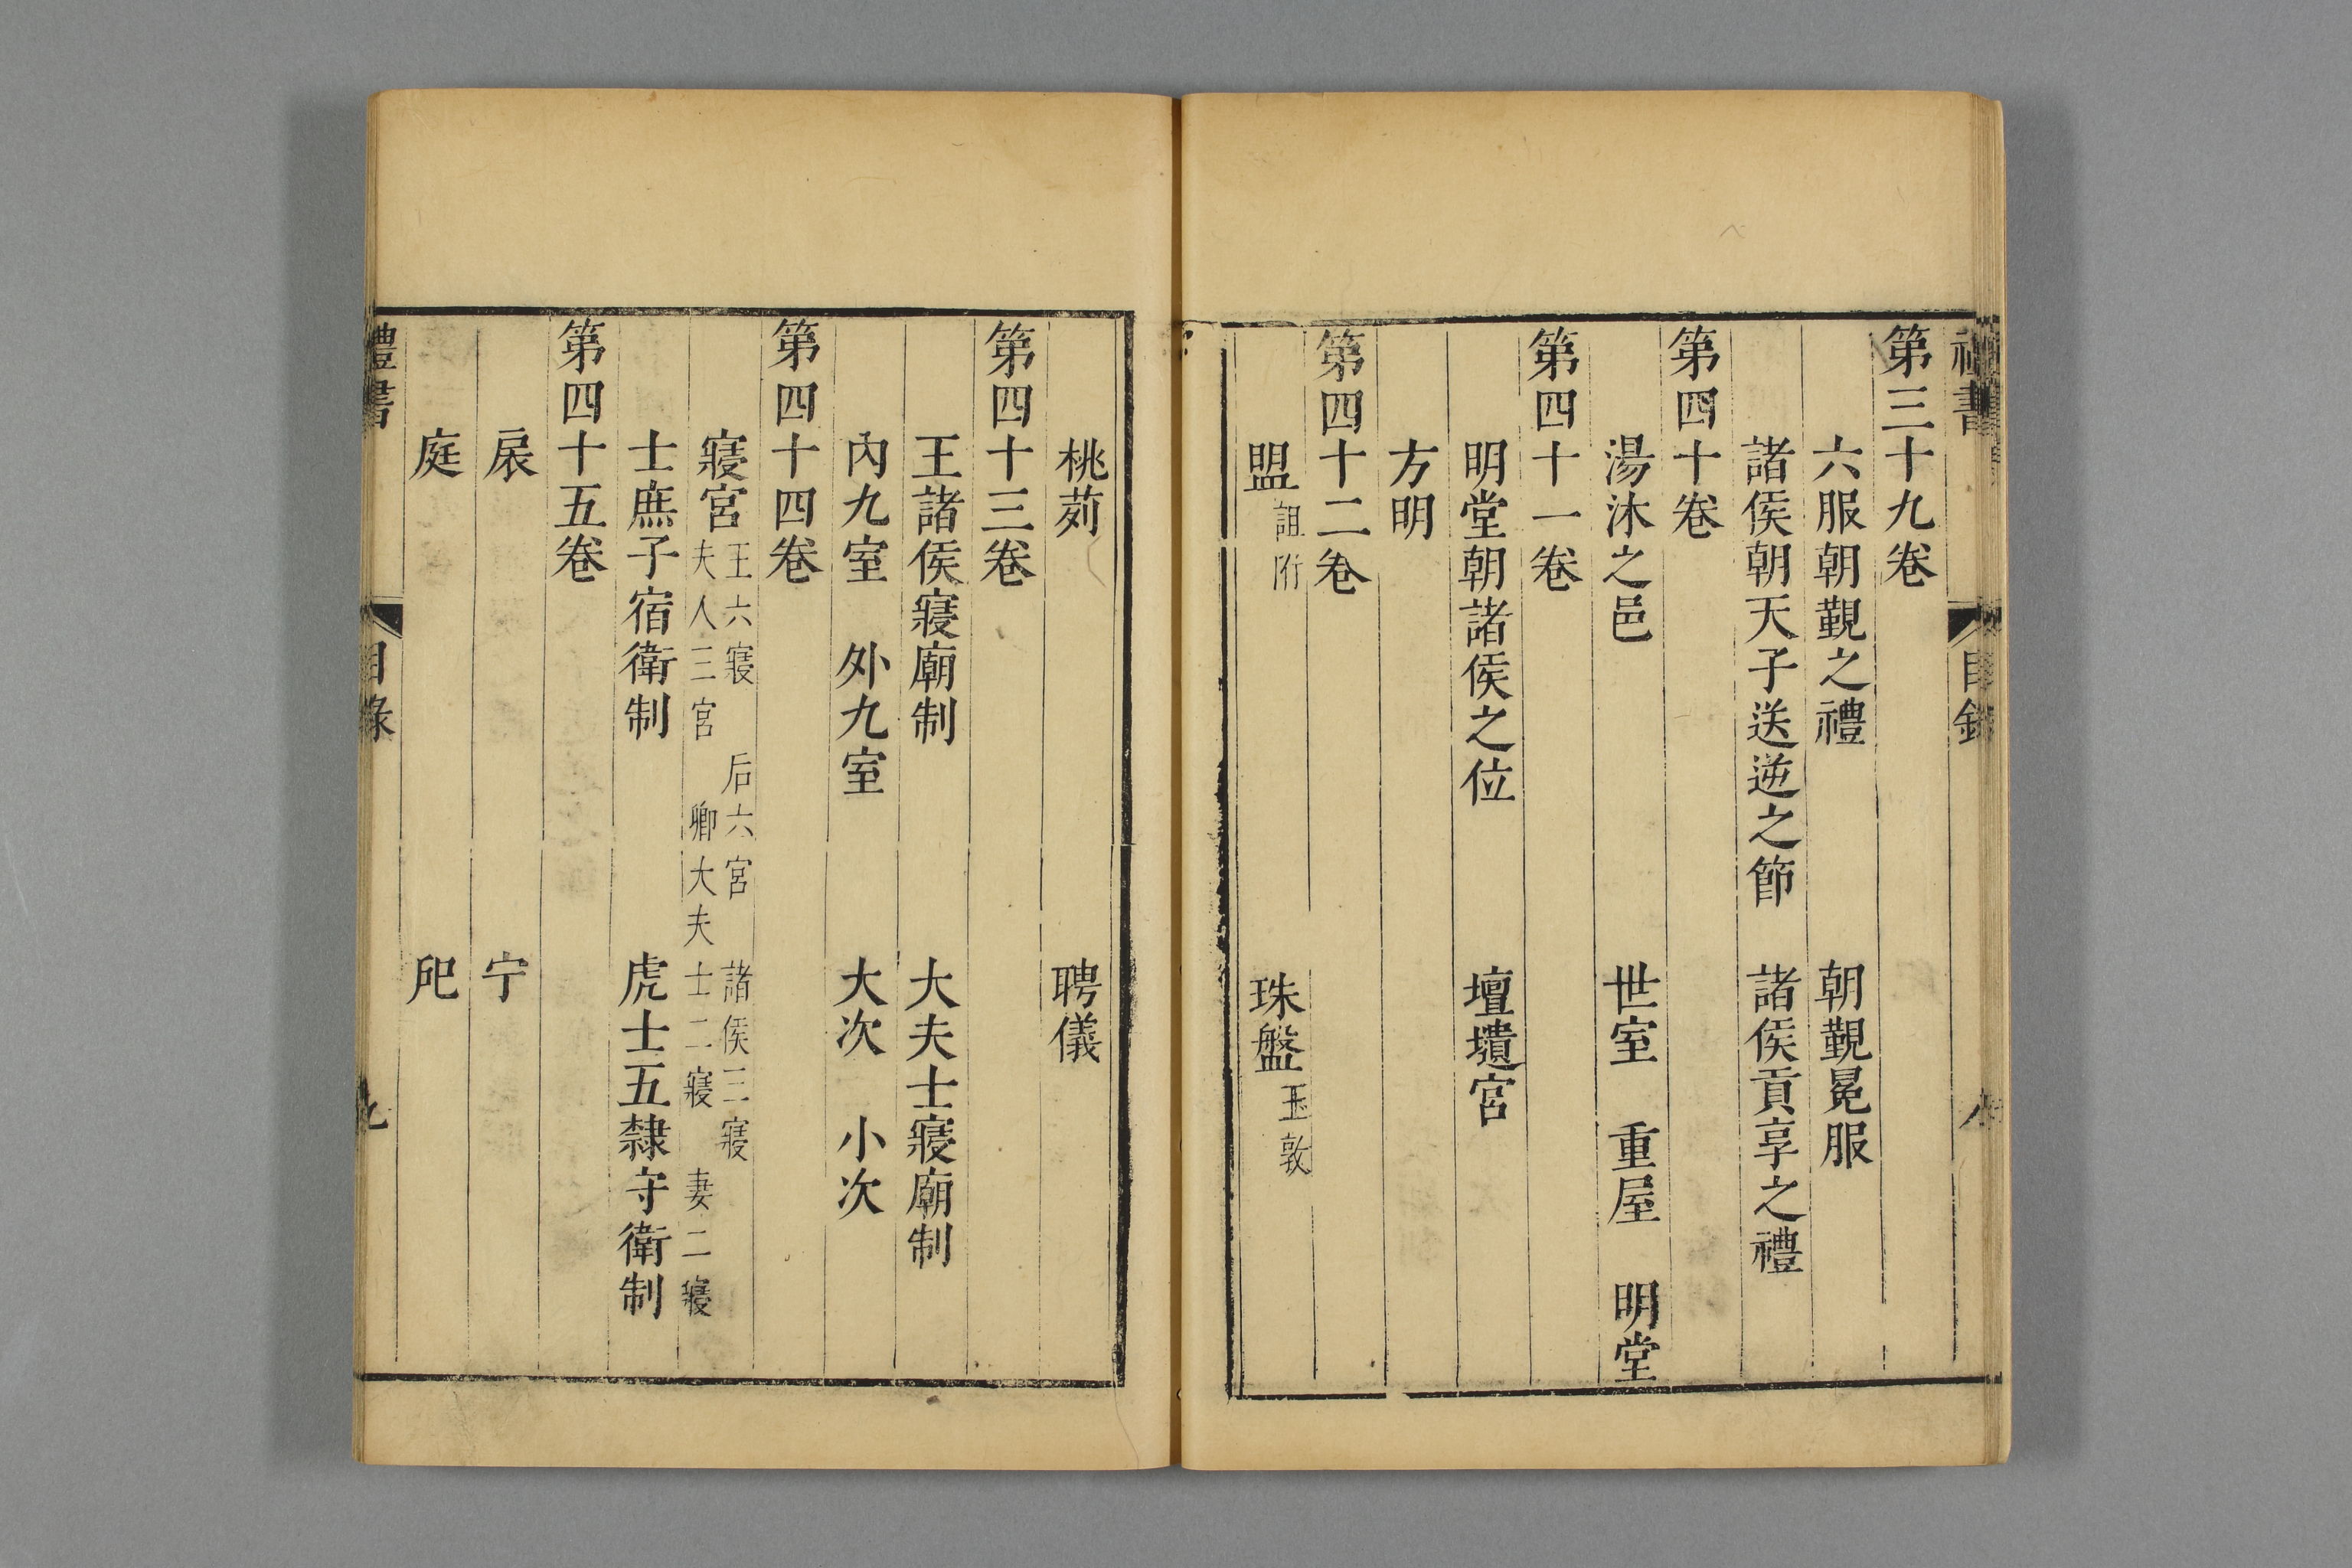 禮書 目錄
第三十九卷
六服朝覲之禮 朝覲冕服
諸侯朝天子送逆之節 諸侯貢享之禮
第四十卷
湯沐之邑 世室 重屋 明堂
第四十一卷
明堂朝諸侯之位 壇壝宮
方明
第四十二卷
盟詛附 珠盤玉敦
桃茢 聘儀
第四十三卷
王諸侯寢廟制 大夫士寢廟制
內九室 外九室 大次 小次
第四十四卷
寢宮王六寢 后六宮 諸侯三寢
夫人三宮 卿大夫士二寢 妻二寢
士庶子宿衛制 虎士五隸守衛制
第四十五卷
扆 宁
庭 戺
禮書 目錄 九